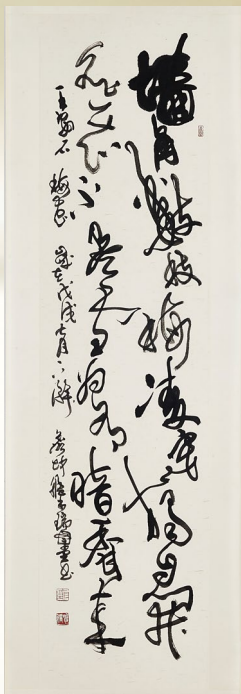 牆角數枝梅凌寒獨自開
遥知不是雪為有暗香來
王安石 梅花 歲在戊戌七月下浣